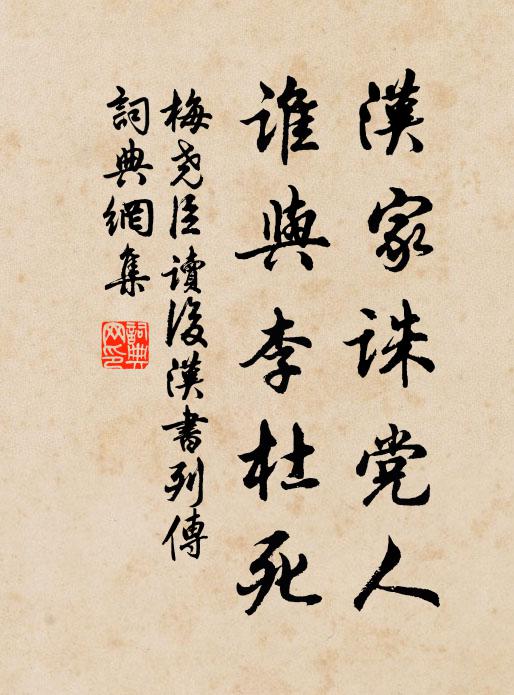 漢家誅党人
誰與李杜死
梅尧臣讀後漢書列傳
詞典網集
詞典網印